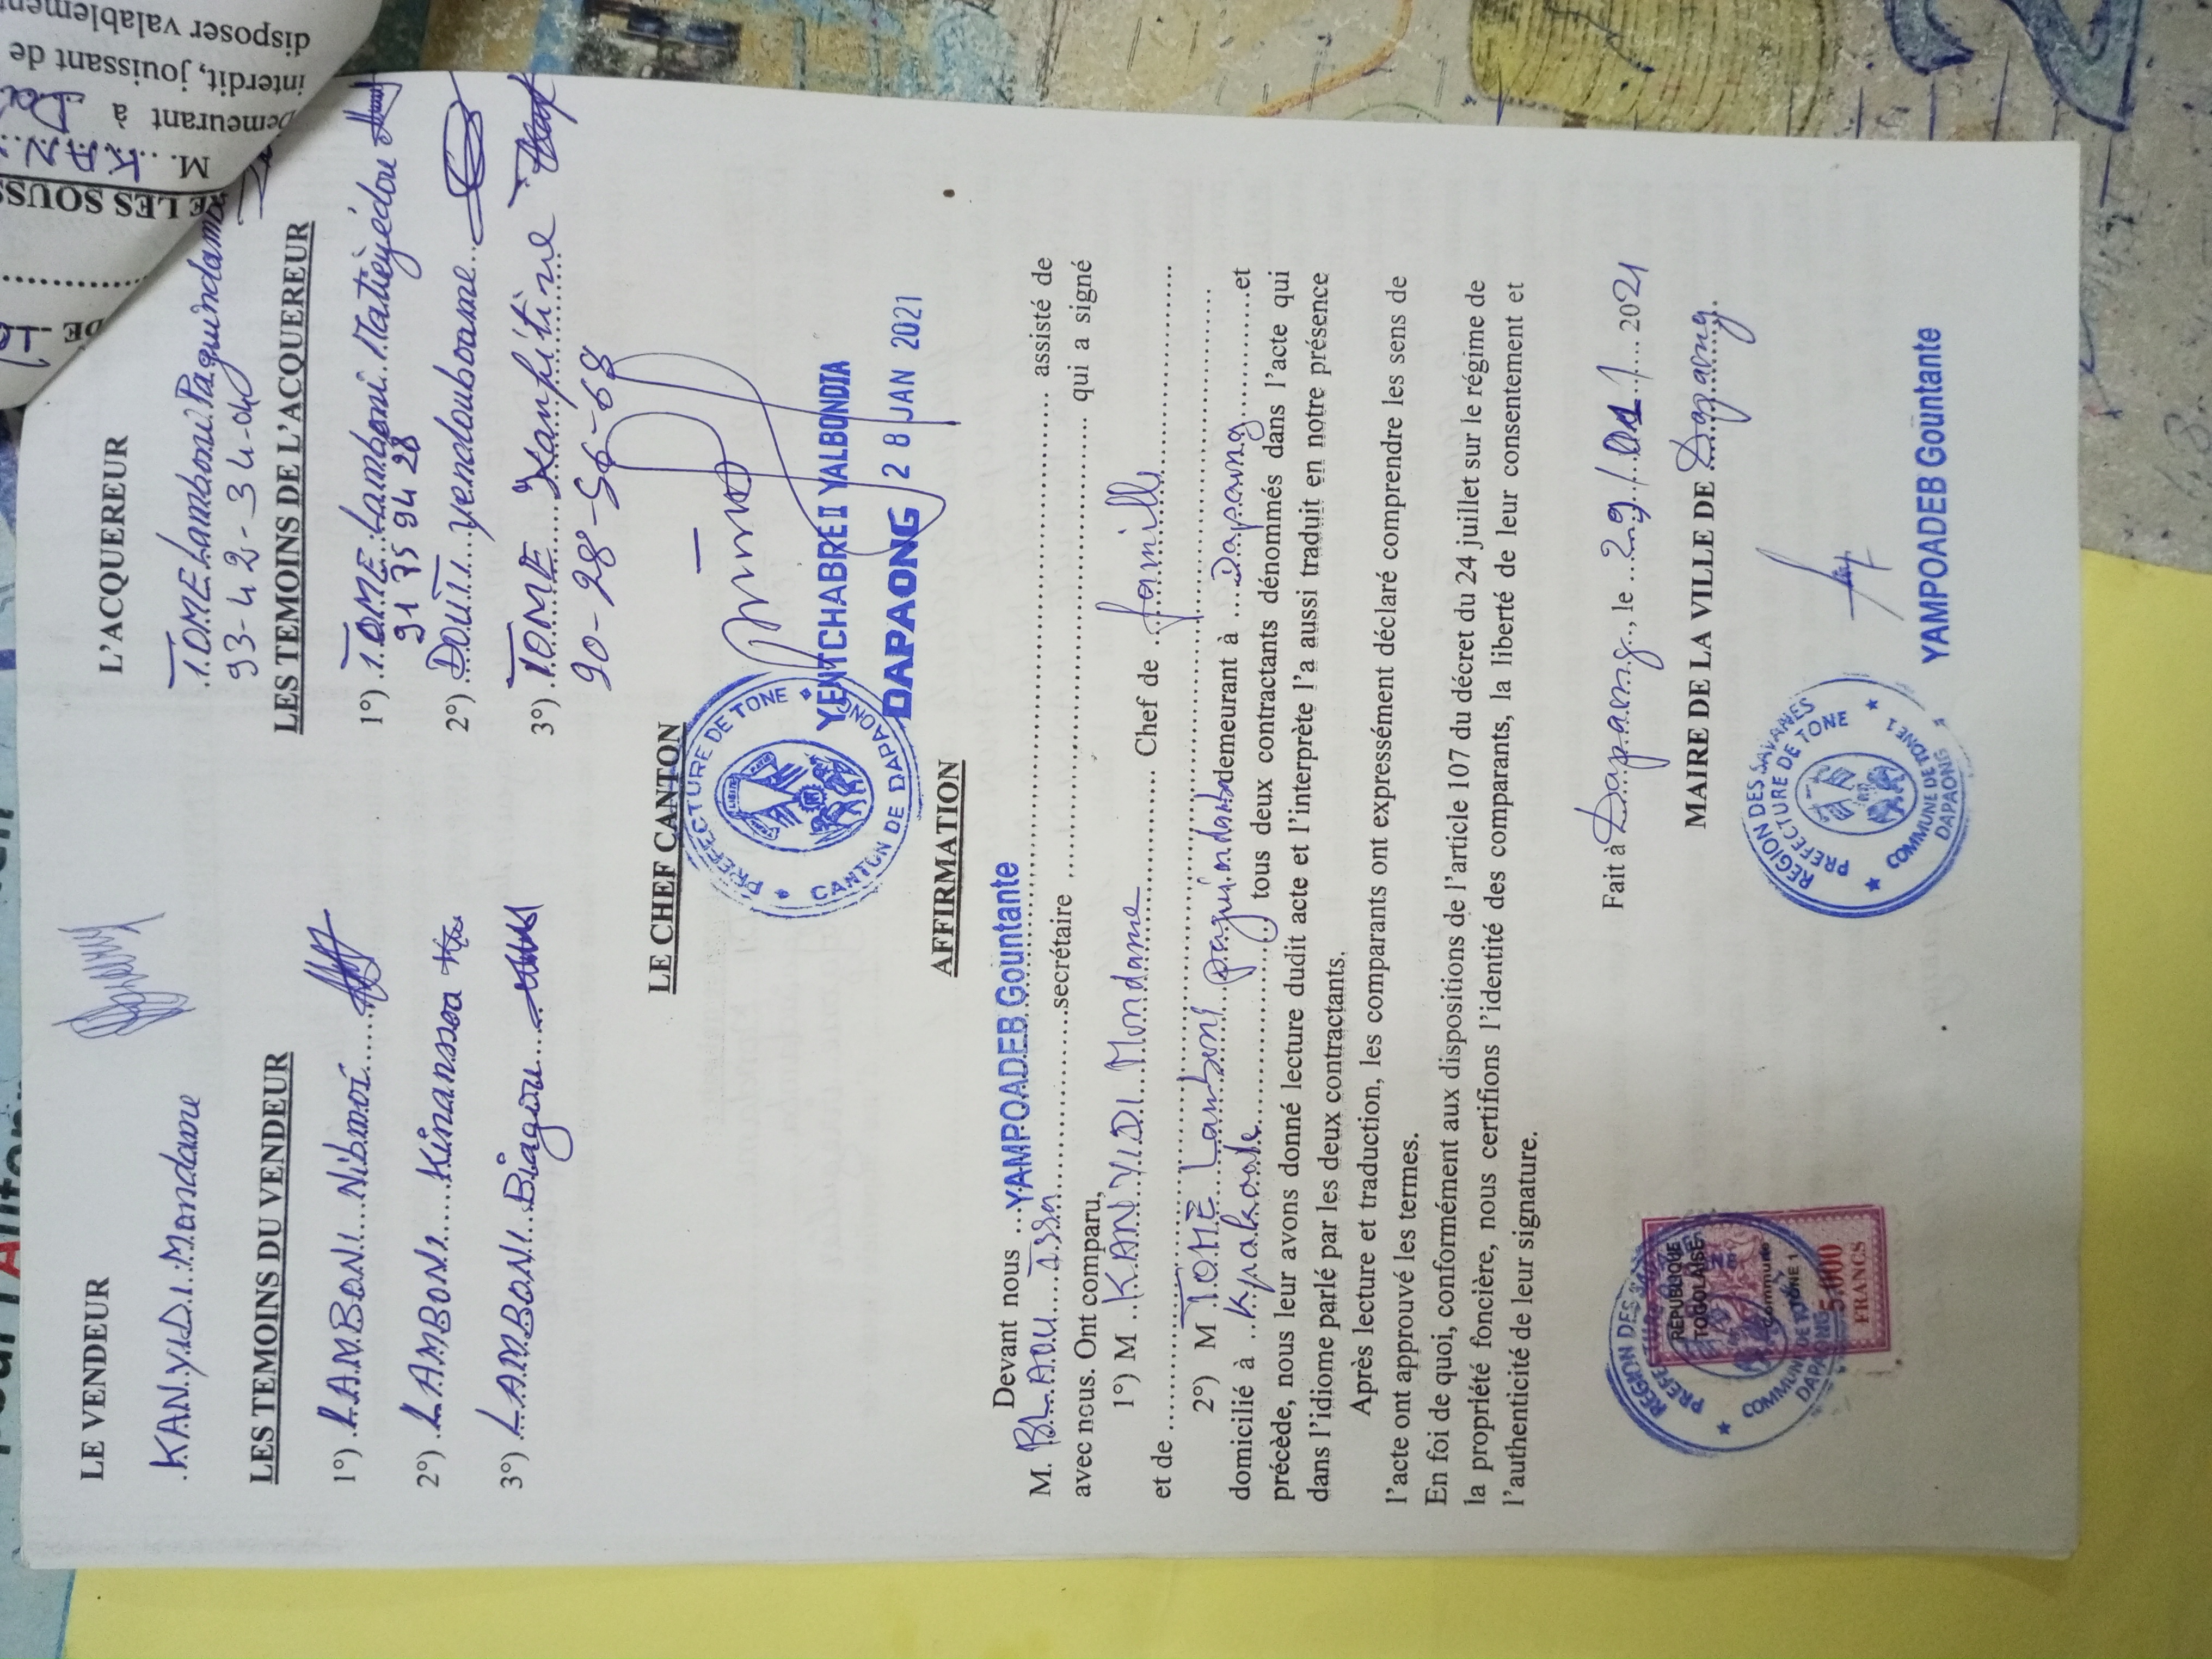 LE VENDEUR
KANYIDI Mondame
LES TEMOINS DU VENDEUR
1°) LAMBONI Nibmoi
2°) LAMBONI Kinansoa
3°) LAMBONI Biagou
L'ACQUEREUR
TOME Lamboni Paguindame
93-42-34-04
LES TEMOINS DE L'ACQUEREUR
1°) TOME Lamboni Natiéyédou
91 75 94 28
2°) DOUTI yendouboame
3°) TOME Kanfitine
90-28-56-68
LE CHEF CANTON
PREFECTURE DE TONE
CANTON DE DAPAONG
YENTCHABRE II YALBONDJA
DAPAONG 28 JAN 2021
AFFIRMATION
Devant nous ... YAMPOADEB Gountante ... assisté de
M. BLAOU Issa ... secrétaire ... qui a signé
avec nous. Ont comparu,
1°) M KANYIDI Mondame ... Chef de famille
et de ...
2°) M TOME Lamboni paguindame demeurant à Dapaong et
domicilié à Kpakpale ... tous deux contractants dénommés dans l'acte qui
précède, nous leur avons donné lecture dudit acte et l'interprète l'a aussi traduit en notre présence
dans l'idiome parlé par les deux contractants.
Après lecture et traduction, les comparants ont expressément déclaré comprendre les sens de
l'acte ont approuvé les termes.
En foi de quoi, conformément aux dispositions de l'article 107 du décret du 24 juillet sur le régime de
la propriété foncière, nous certifions l'identité des comparants, la liberté de leur consentement et
l'authenticité de leur signature.
Fait à Dapaong, le 29/01/2021
MAIRE DE LA VILLE DE Dapaong
REGION DES SAVANES
PREFECTURE DE TONE
COMMUNE DE TONE 1
DAPAONG
YAMPOADEB Gountante
REPUBLIQUE
TOGOLAISE
Commune
TONE 1
5.000
FRANCS
REGION DES
DAPAONG
LES SOUSS
M. KAN
Demeurant à
interdit, jouissant de
disposer valablement